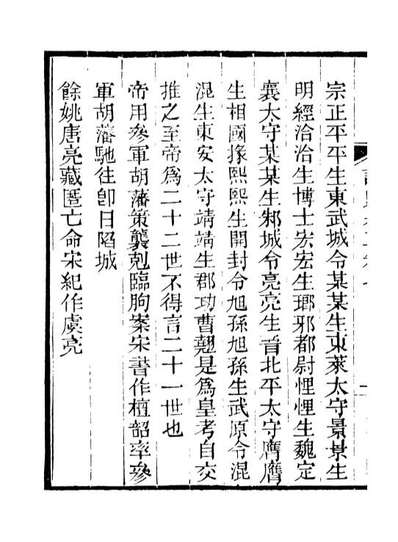 宗正平平生東武城令某某生東萊太守景景生
明經洽洽生博士宏宏生瑯邪都尉悝悝生魏定
襄太守某某生邪城令亮亮生晉北平太守膺膺
生相國掾熙熙生開封令旭孫旭孫生武原令混
混生東安太守靖靖生郡功曹翹是爲皇考自交
推之至帝爲二十二世不得言二十一世也
帝用參軍胡藩策襲剋臨朐案宋書作檀韶率參
軍胡藩馳往卽日陷城
餘姚唐亮藏匿亡命宋紀作虞亮